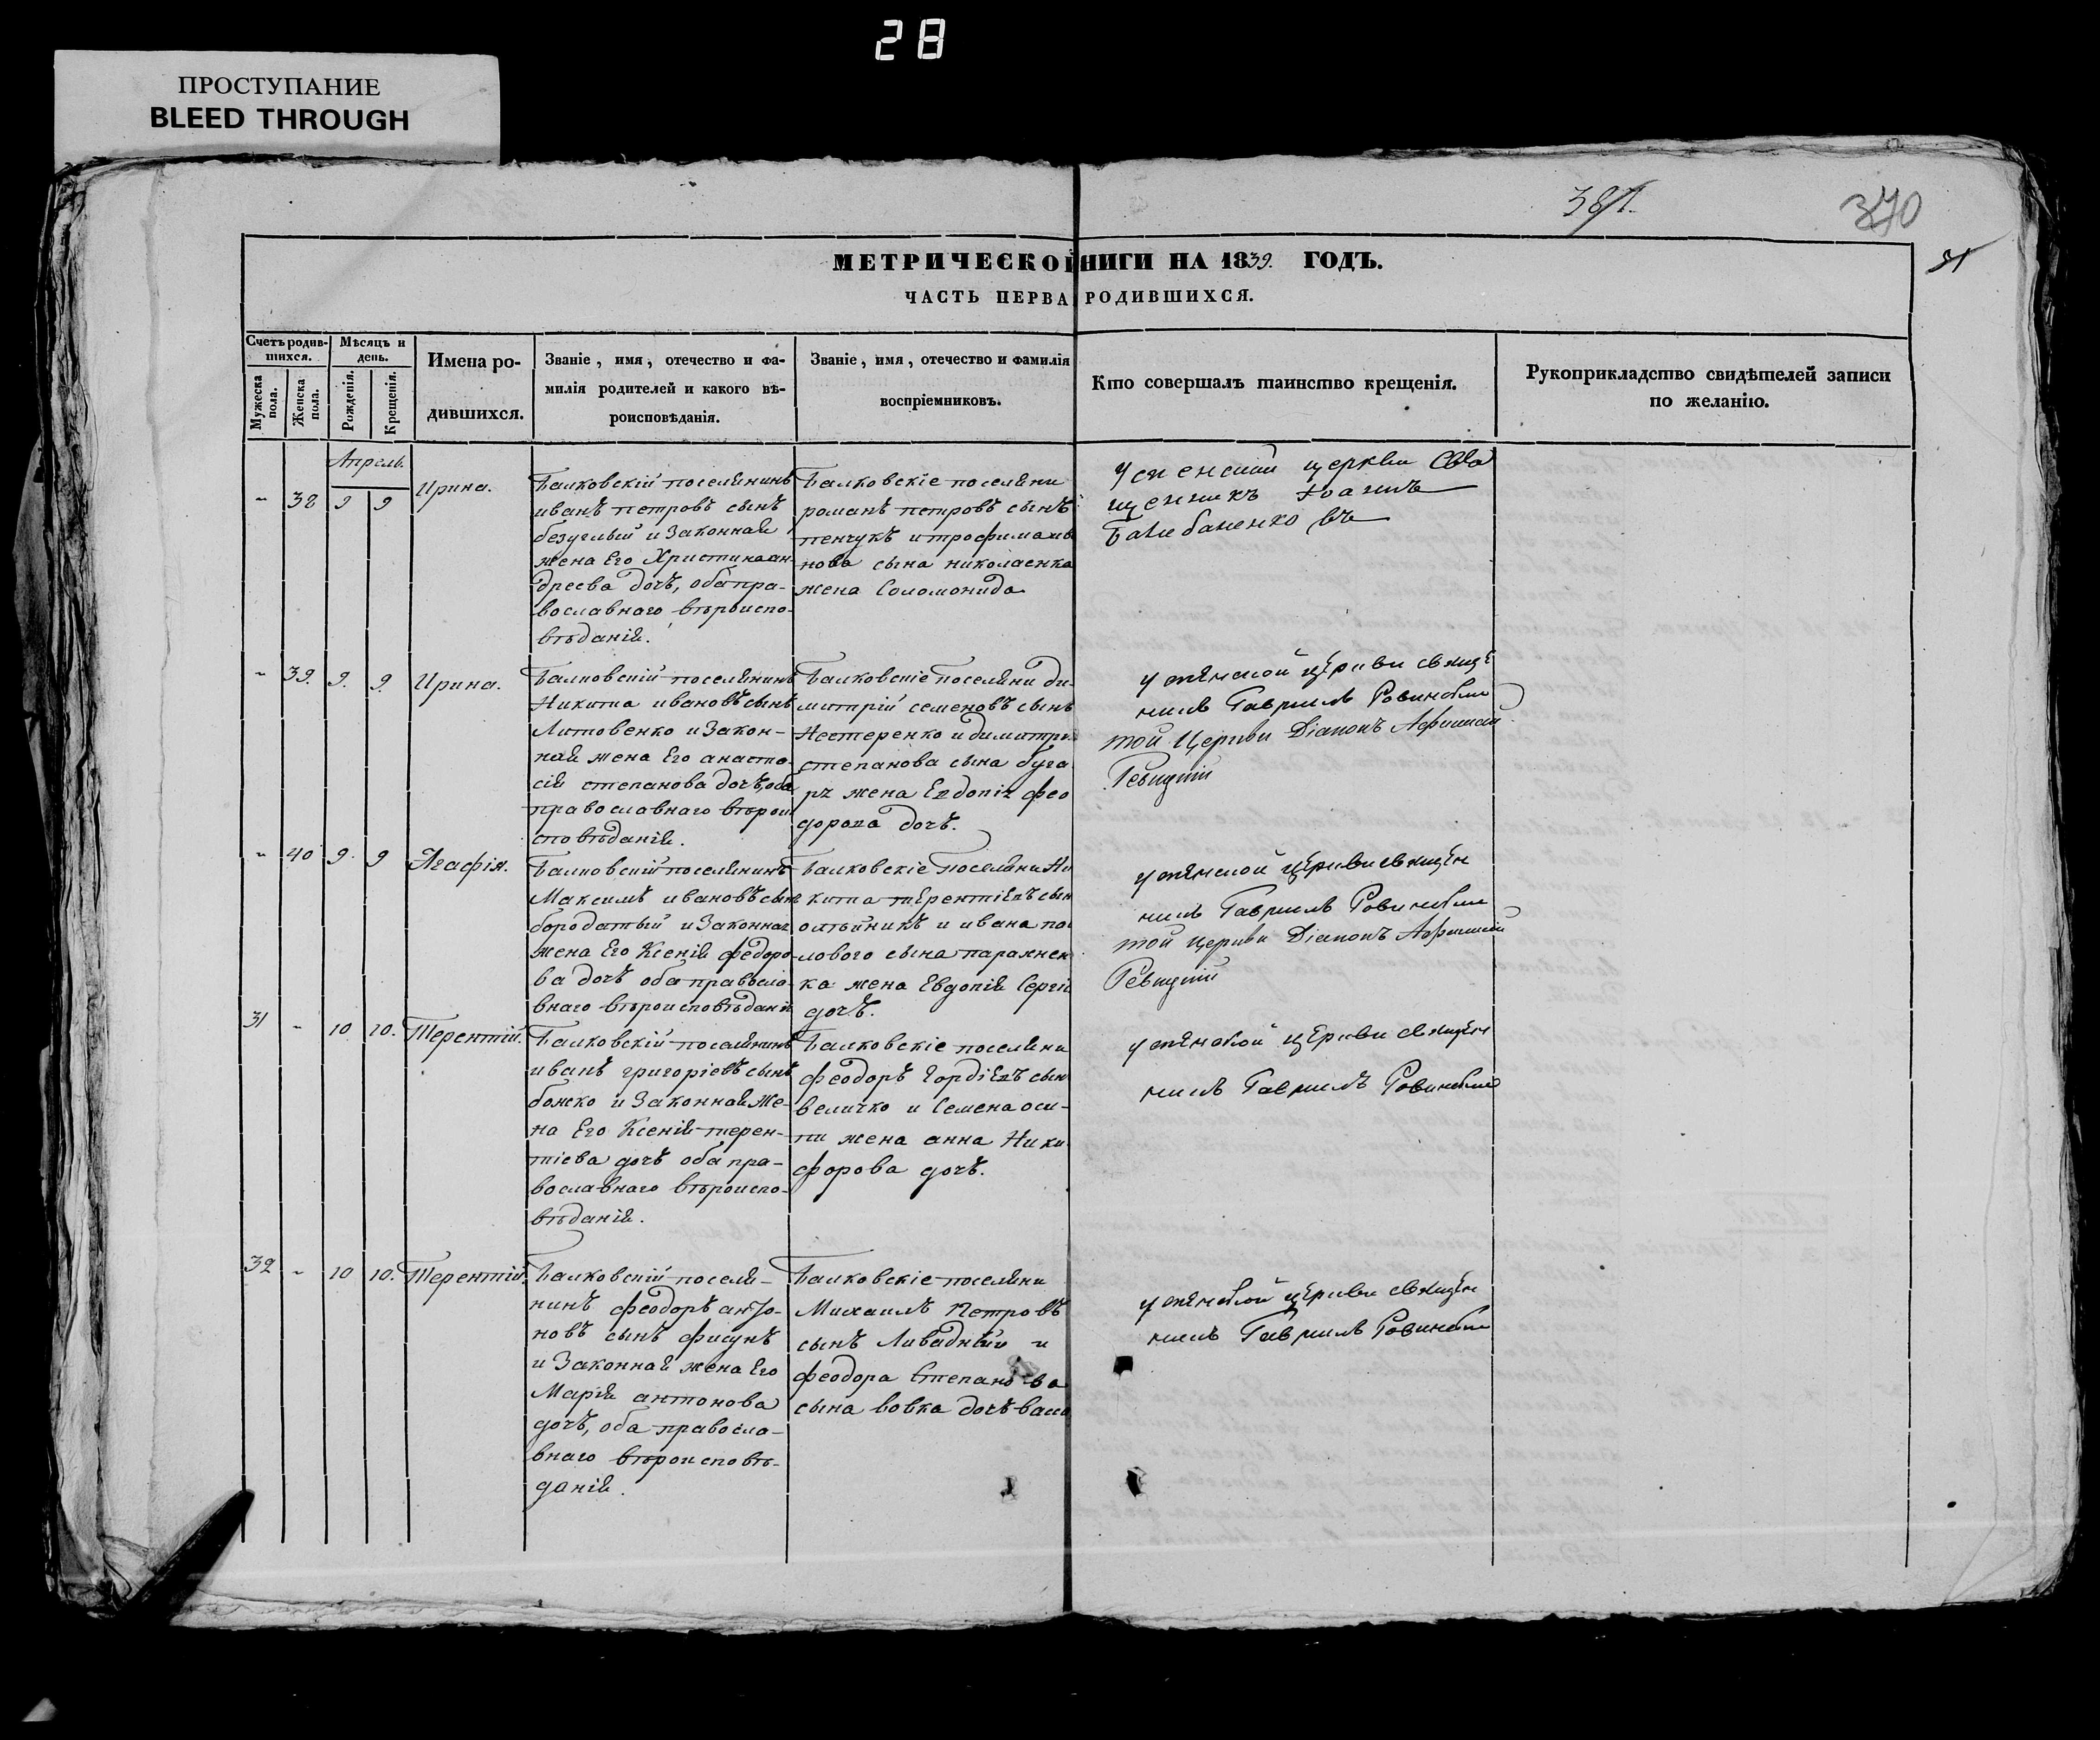 28
ПРОСТУПАНИЕ
BLEED THROUGH
370
МЕТРИЧЕСКОЙ НИГИ НА 1839. ГОДЪ.
ЧАСТЬ ПЕРВА РОДИВШИХСЯ.
Счетъ родив-
шихся.
Мѣсяцъ и
день.
Мужеска
пола.
Женска
пола.
Рожденія.
Крещенія.
Имена ро-
дившихся.
Званіе, имя, отечество и фа-
милія родителей и какого вѣ-
роисповѣданія.
Званіе, имя, отечество и фамилія
воспріемниковъ.
Кто совершалъ таинство крещенія.
Рукоприкладство свидѣтелей записи
по желанію.
Апрель.
- 38 9 9
Ирина.
Балковскій поселянинъ
иванъ петровъ сынъ
безуглый и Законная
жена Его Христина ан-
дреева дочь, оба пра-
вославнаго вѣроиспо-
вѣданія.
Балковскіе поселяни
романъ петровъ сынъ
пенчукъ и трофима ива
нова сына николаенка
жена Соломонида
Успенской церкви Свя
щенникъ Іоаннъ
- 39. 9. 9.
Ирина.
Балковскій поселянинъ
Никита ивановъ сынъ
Литовенко и Закон-
ная жена Его анаста-
сія степанова дочь, оба
православнаго вѣрои
споведанія.
Балковскіе поселяни ди-
митрій семеновъ сынъ
Нестеренко и димитрія
степанова сына буга
ря жена Евдокія фео
дорова дочь.
успенской церкви свяще
никъ Гавриилъ Ровинскій
той Церкви Діаконъ
- 40 9. 9
Агафія.
Балковскій поселянинъ
Максимъ ивановъ сынъ
бородатый и Законная
жена Его Ксенія федоро-
ва дочь оба правосла-
внаго вѣроисповѣданія
Балковскіе поселяни Ни
кита терентіевъ сын
олейникъ и ивана
сына
ка жена Евдокія Сергіе
дочь.
успенской церкви священ
никъ Гавриилъ Ровинскій
той церкви Діаконъ
31 - 10 10.
Терентій.
Балковскій поселянинъ
иванъ григоріевъ сынъ
божко и Законная же-
на Его Ксенія терен-
тіева дочь оба пра-
вославнаго вѣроиспо-
вѣданія.
Балковскіе поселяни
феодоръ гордіевъ сын
величко и Семена оси-
пи жена анна Ники
форова дочь.
успенской церкви священ
никъ Гавриилъ Ровинскій
32 - 10 10.
Терентій.
Балковскій поселя-
нинъ феодоръ анто-
новъ сынъ фисунъ
и Законная жена Его
Марія антонова
дочь, оба правосла-
внаго вѣроисповѣ-
данія.
Балковскіе поселяни
Михаилъ Петровъ
сынъ Ливадный и
феодора Степанова
сына вовка дочь васи
успенской церкви священ
никъ Гавриилъ Ровинскій